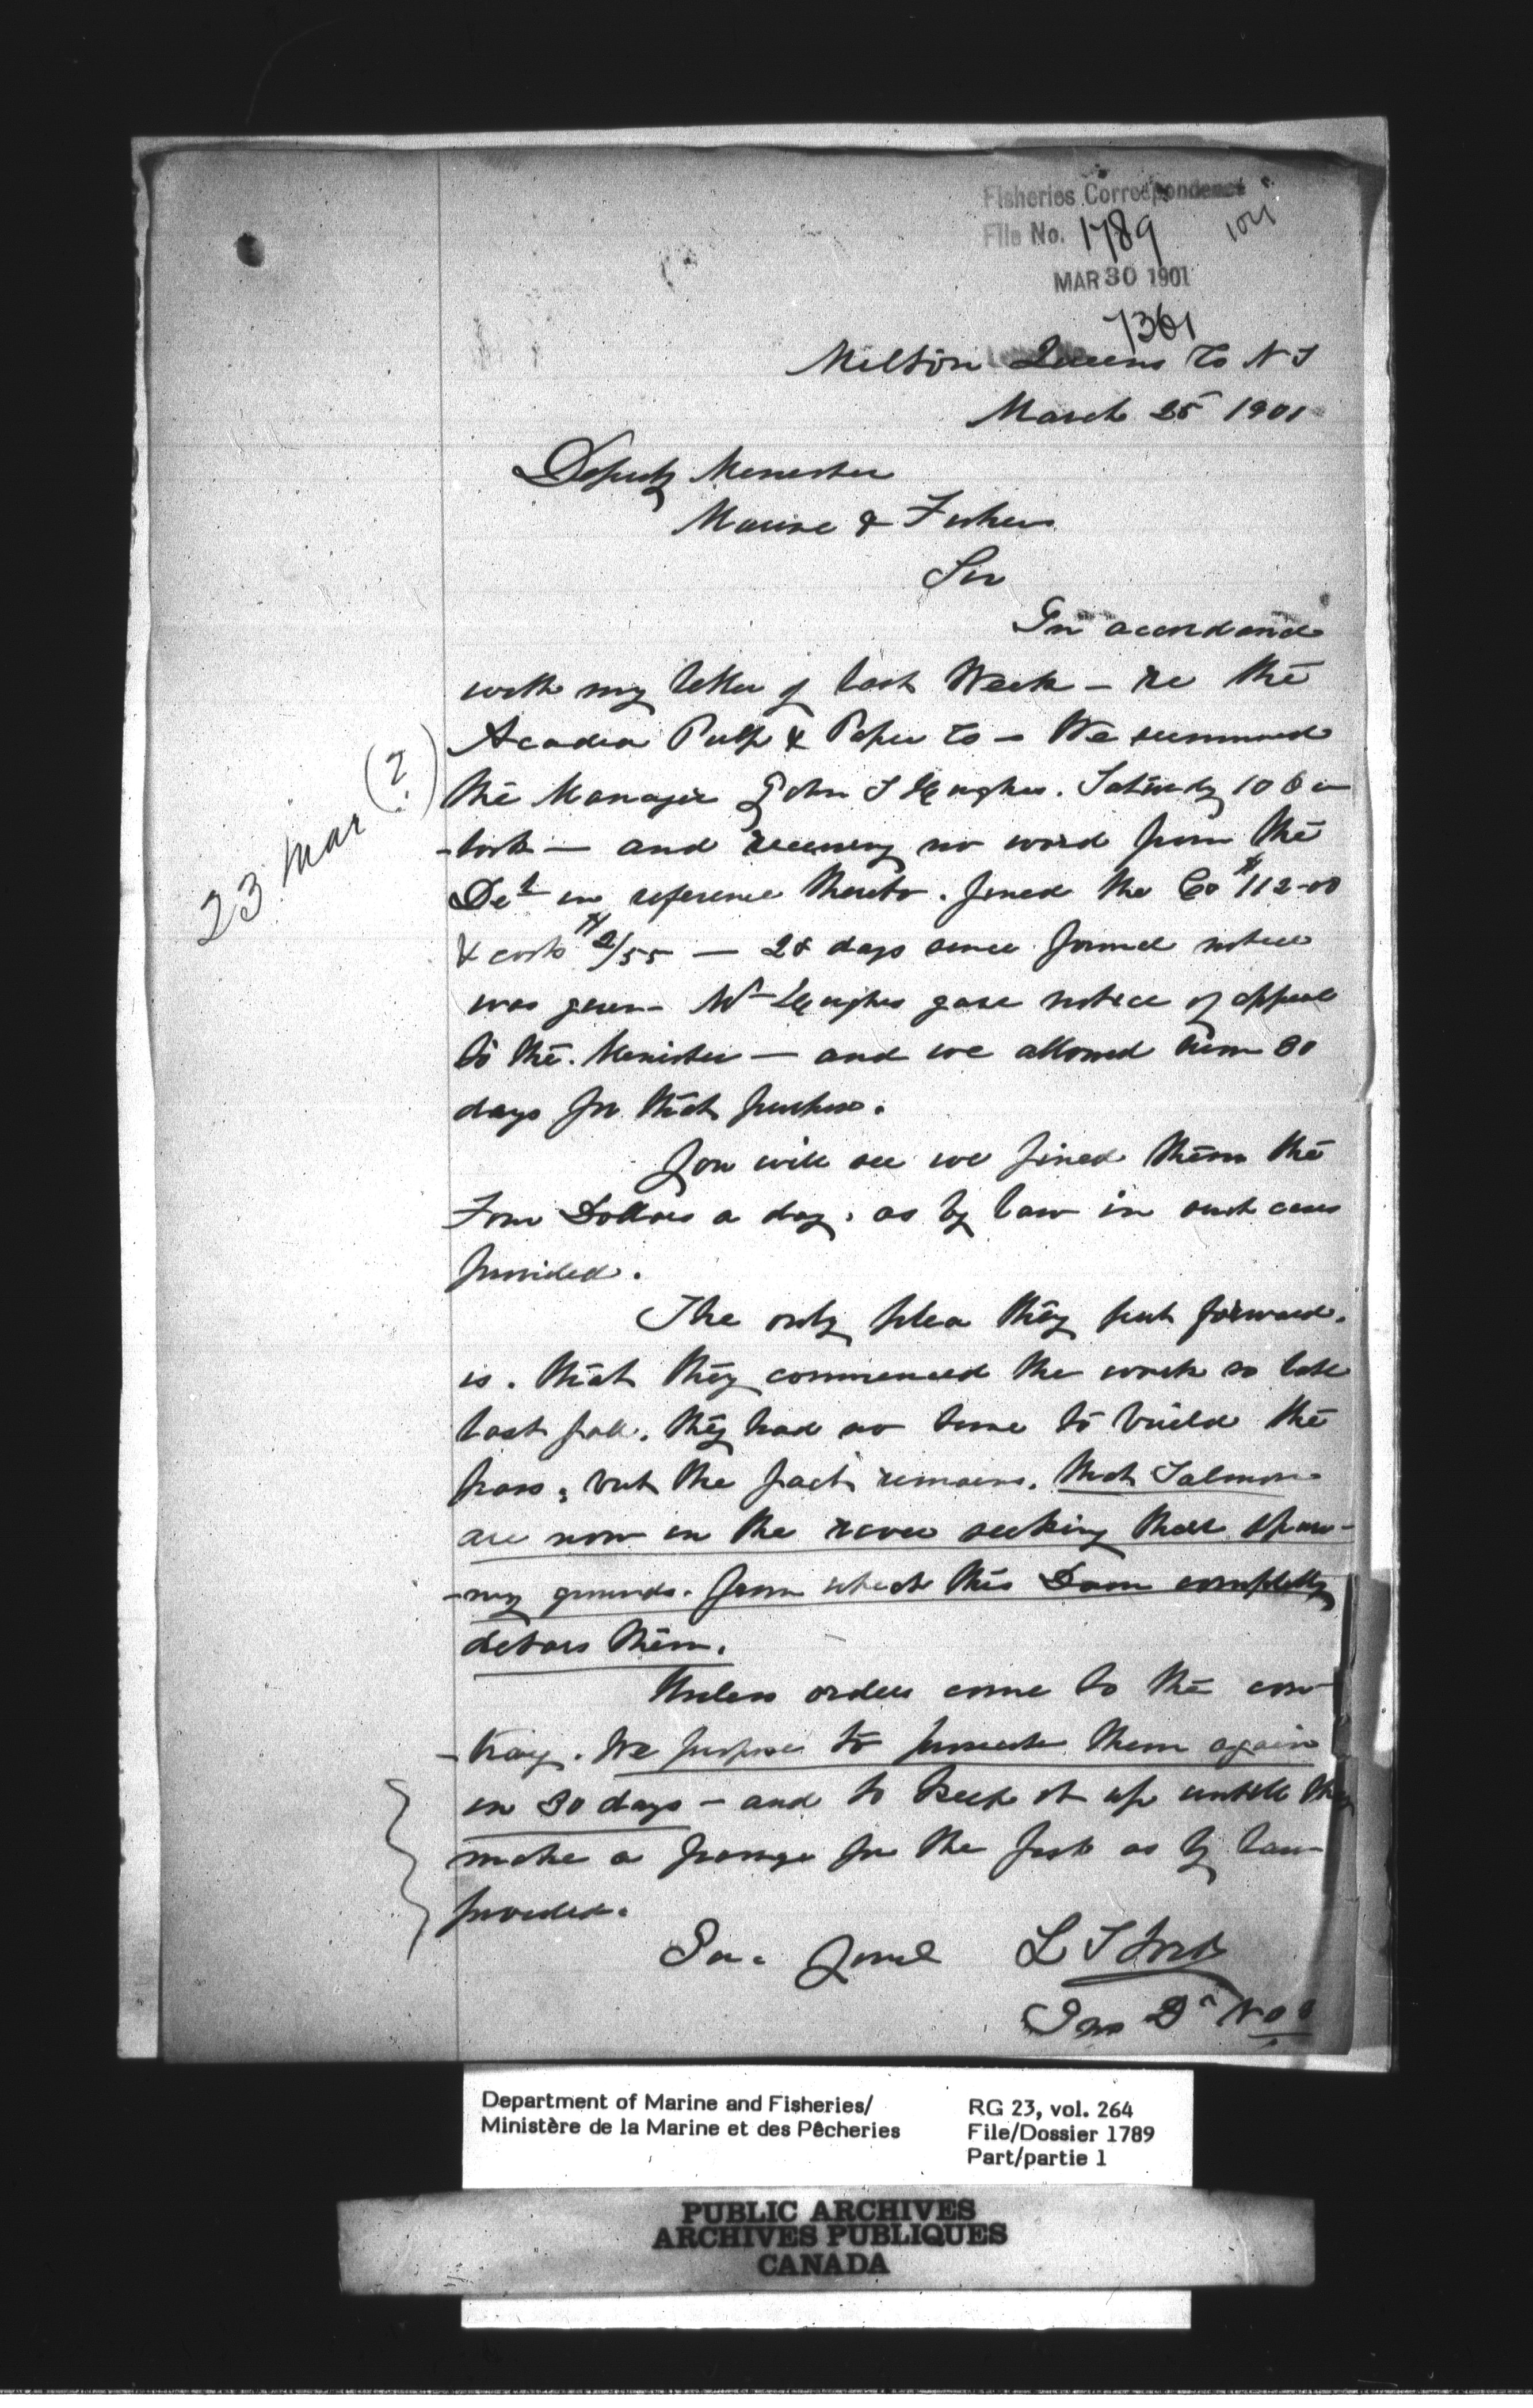 Fisheries Correspondence
File No. 1789
104
MAR 30 1901
7361
Milton Queens Co N S
March 25 1901
Deputy Minister
Marine & Fisheries
Sir
In accordance
with my letter of last Week — re the
Acadia Pulp & Paper Co — We summoned
(?)
the Manager John S Hughes. Saturday 10 O c-
23 Mar
-lock — and receiving no word from the
Det in reference thereto. fined the Co $112-00
& costs $2/55 — 28 days since formal notice
was given. Mr Hughes gave notice of appeal
to the. Minister — and we allowed him 30
days for that purpose.
You will see we fined them the
Four Dollars a day. as by law in such cases
provided.
The only plea they put forward.
is. that they commenced the work so late
last fall. they had no time to build the
pass; but the fact remains. that Salmon
are now in the river seeking their spaw-
-ning grounds. from which this Dam completely
debars them.
Unless orders come to the con-
-tray. We propose to prosecute them again
in 30 days — and to keep it up untill they
make a passage for the fish as by law
provided.
L S Ford
Ins Dt No
Department of Marine and Fisheries/
Ministère de la Marine et des Pêcheries
RG 23, vol. 264
File/Dossier 1789
Part/partie 1
PUBLIC ARCHIVES
ARCHIVES PUBLIQUES
CANADA